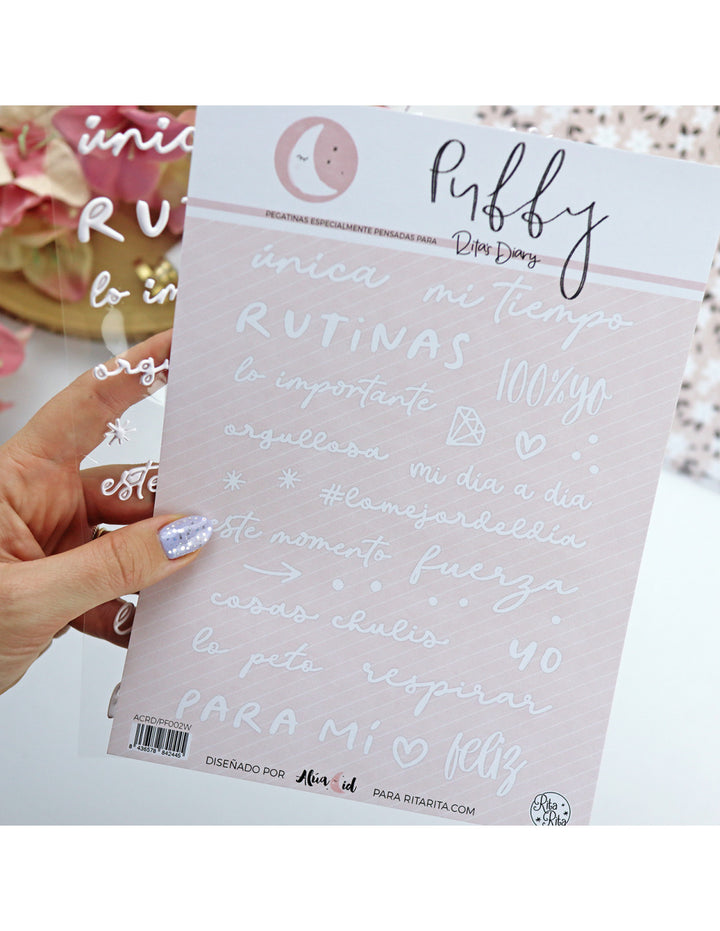 Puffy
PEGATINAS ESPECIALMENTE PENSADAS PARA Rita's Diary
única mi tiempo
RUTiNAS
lo importante 100%yo
orgullosa mi día a día
#lomejordeldía
este momento fuerza
cosas chulis yo
lo peto respirar
PARA Mí feliz
ACRD/PF002W
8 436578 842445
DISEÑADO POR Alúa Cid PARA RITARITA.COM
Rita Rita
única
RUT
lo im
orgu
este